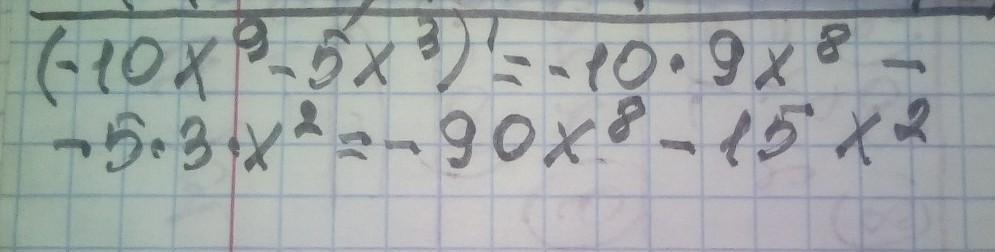 (-10x⁹-5x³)'=-10·9x⁸-
-5·3·x²=-90x⁸-15x²